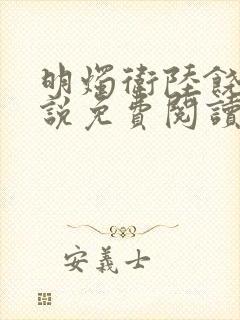 明燭衛陸餞
說免費閱讀
安義士